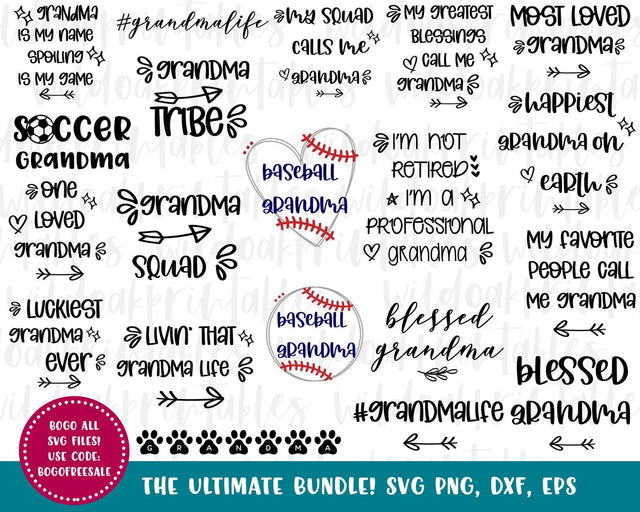 grandma
is my name
spoiling
is my game
#grandmalife
my squad
calls me
grandma
my greatest
blessings
call me
grandma
most loved
grandma
grandma
tribe
happiest
grandma on
earth
SOCCER
GRANDMA
baseball
grandma
I'm not
retired
I'm a
professional
grandma
one
loved
grandma
grandma
squad
my favorite
people call
me grandma
luckiest
grandma
ever
livin' that
grandma life
baseball
grandma
blessed
grandma
blessed
grandma
#grandmalife
GRANDMA
BOGO ALL
SVG FILES!
USE CODE:
BOGOFREESALE
THE ULTIMATE BUNDLE! SVG PNG, DXF, EPS
wildoakprintables